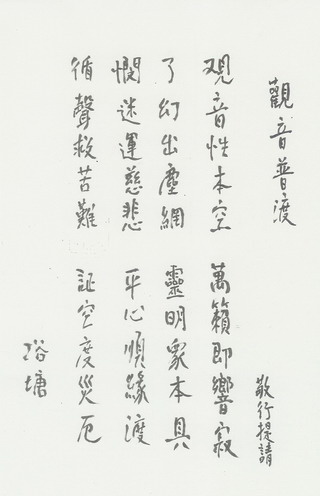 觀音普渡
敬行提請
观音性本空 萬籟即響寂
了幻出塵網 靈明眾本具
憫迷運慈悲 平心順緣渡
循聲救苦難 証空度災厄
塘